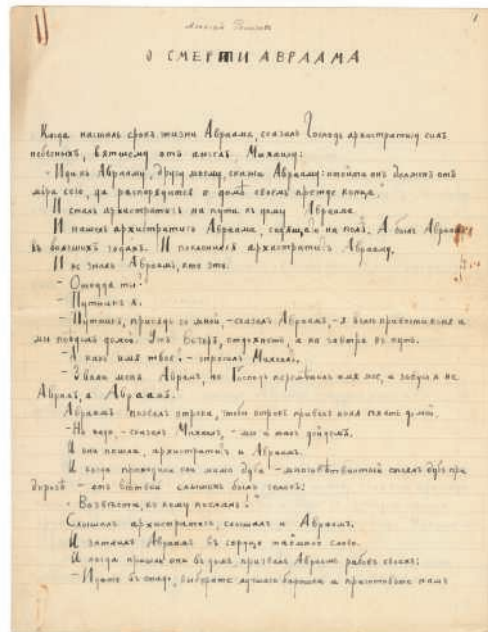 Алексей Ремизов
1
О СМЕРТИ АВРААМА
Когда насталъ срокъ жизни Авраама, сказалъ Господь архистратигу силъ
небесныхъ, вящшему отъ ангелъ Михаилу:
- Иди къ Аврааму, другу моему, скажи Аврааму: отойти онъ долженъ отъ
міра сего, да распорядится о домѣ своемъ прежде конца.
И сталъ архистратигъ на пути къ дому Авраама.
И нашелъ архистратигъ Авраама, сидящаго на полѣ. А былъ Авраамъ
въ большихъ годахъ. И поклонился архистратигъ Аврааму.
И не зналъ Авраамъ, кто это.
- Откуда ты?
- Путникъ я.
- Путникъ, присядь со мной, - сказалъ Авраамъ, - я велю привести коня и
мы поѣдемъ домой. Ужъ вечеръ, отдохнешь, а на завтра въ путь.
- А какое имя твое? - спросилъ Михаилъ.
- Звали меня Аврамъ, но Господь перемѣнилъ имя мое, и зовусь я не
Аврамъ, а Авраамъ.
Авраамъ позвалъ отрока, чтобы отрокъ привелъ коня ѣхать домой.
- Не надо, - сказалъ Михаилъ, - мы и такъ дойдемъ.
И они пошли, архистратигъ и Авраамъ.
И когда проходили они мимо дуба - многовѣтвистый стоялъ дубъ при
дорогѣ - отъ вѣтвей слышенъ былъ голосъ:
- Возвѣсти, къ кому посланъ!
Слышалъ архистратигъ, слышалъ и Авраамъ.
И затаилъ Авраамъ въ сердцѣ тайное слово.
И когда пришли они въ домъ, призвалъ Авраамъ рабовъ своихъ:
- Идите въ стадо, выберите лучшаго барашка и приготовьте намъ